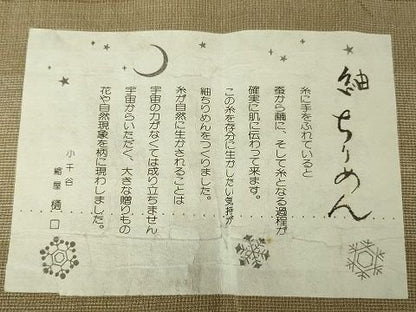 紬ちりめん
糸に手をふれていると
蚕から繭に、そして糸となる過程が
確実に肌に伝わって来ます。
この糸を存分に生かしたい気持が
紬ちりめんをつくりました。
糸が自然に生かされることは
宇宙の力がなくては成り立ちません
宇宙からいただく、大きな贈りもの
花や自然現象を柄に現わしました。
小千谷
紬屋 樋口